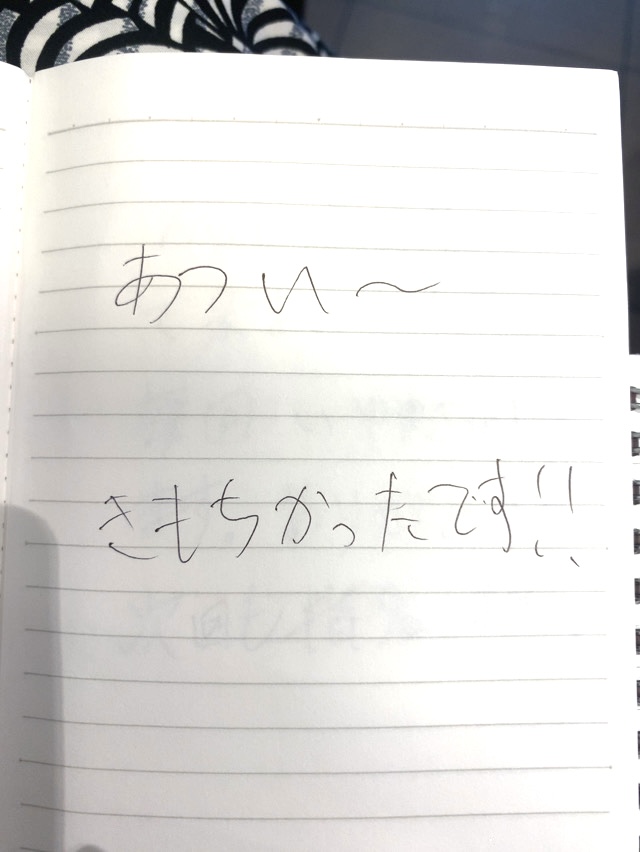 あつい〜
きもちかったです!!